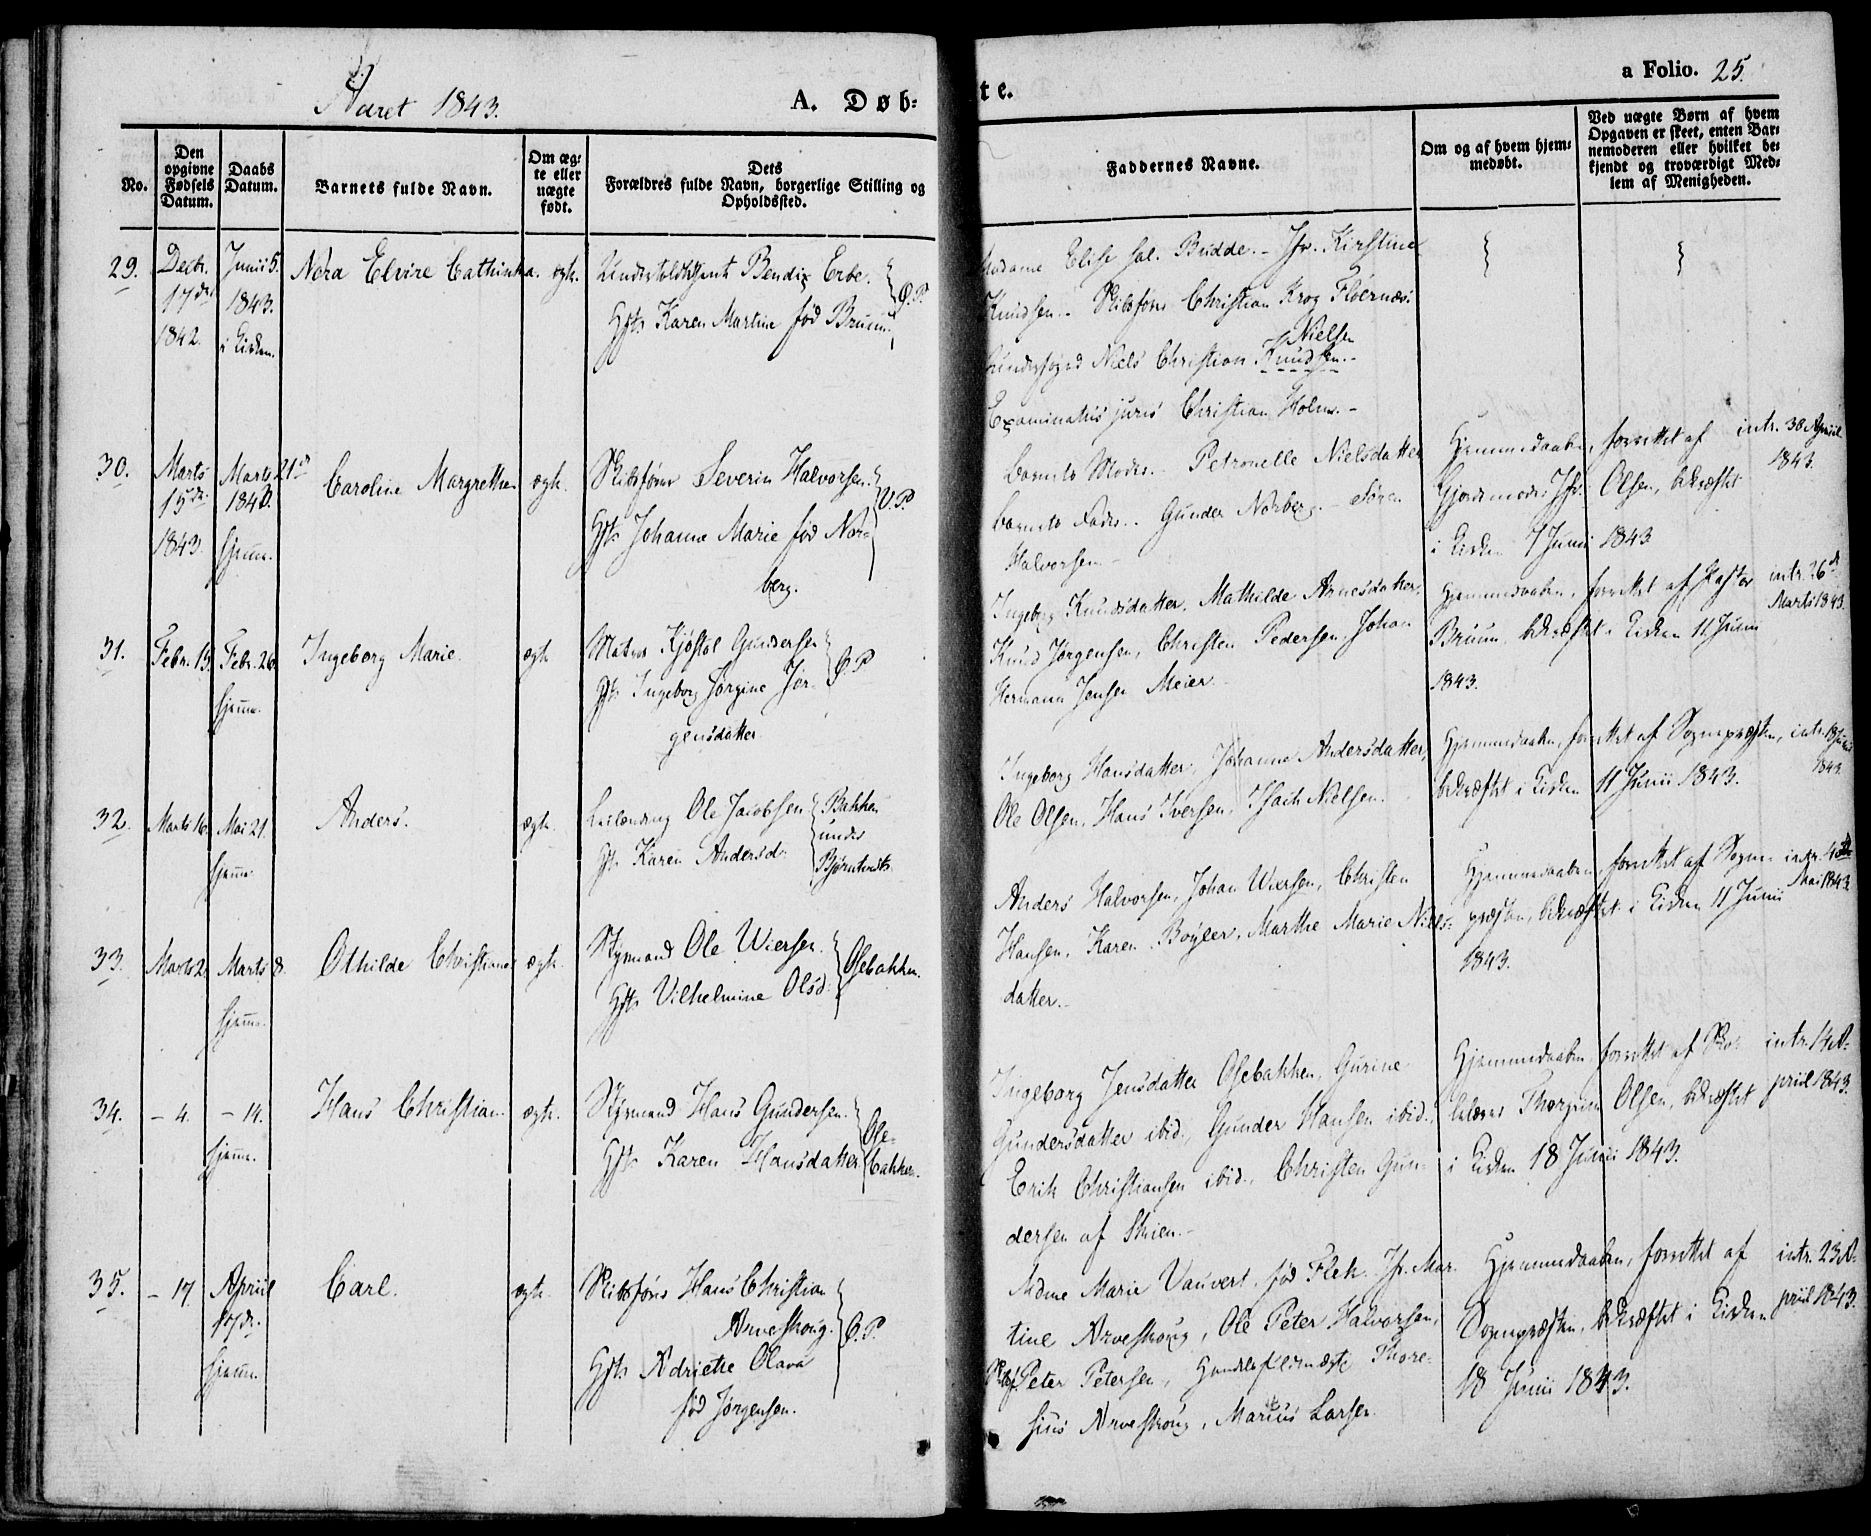 Aaret 1843. A. Døb-
te. a Folio. 25.
No.
Den opgivne Fødsels Datum.
Daabs Datum.
Barnets fulde Navn.
Om ægte eller uægte født.
Dets Forældres fulde Navn, borgerlige Stilling og Opholdssted.
Faddernes Navne.
Om og af hvem hjemmedøbt.
Ved uægte Børn af hvem Opgaven er skeet, enten Barnemoderen eller hvilket bekjendt og troværdigt Medlem af Menigheden.
29. Decbr. 17de 1842. Junii 5. 1843. i Kirken. Nora Elvire Cathinka. ægte.
Bendix Erbo.
Gft Karen Martine fød Bruun. Ø.P.
Madame Elise sal. Budde. - Jfr. Kirstine
Knudsen. - Skibsfører Christian Krog Floernæs.
Nielsen
Niels Christian Knudsen. -
Examinatus juris Christian Holm. -
30. Marts 15de 1843. Marts 21de 1843. hjemme. Caroline Margrethe ægte.
Skibsfører Severin Halvorsen.
Gft Johanne Marie fød Nor-
berg. V.P.
Barnets Moder. - Petronelle Nielsdatter
Barnets Fader. - Gunder Norberg. - Søren
Halvorsen. -
Hjemmedaaben, forrettet af intr. 30 April
Gjordemoder Jfr. Olsen, bekræftet 1843.
i Kirken 7 Junii 1843
31. Febr. 13. Febr. 26. hjemme. Ingeborg Marie. ægte
Matros Kjøstol Gundersen
Gft Ingeborg Jørgine Jør-
gensdatter Ø.P
Ingeborg Knudsdatter, Mathilde Arnesdatter,
Knud Jørgensen, Christen Pedersen, Johan
Hermann Jensen Meier. -
Hjemmedaaben, forrettet af Pastor intr. 26de
Bruun, bekræftet i Kirken 11 Junii Marts 1843.
1843.
32. Marts 16. Mai 21. hjemme. Anders. ægte.
Leilænding Ole Jacobsen
Gft Karen Andersd.
Bakken
under
Bjørntvedt
Ingeborg Hansdatter, Johanne Andersdatter,
Ole Olsen, Hans Iversen, Isach Nielsen.
Hjemmedaaben, forrettet af Sognepræsten, intr. 18 Junii
bekræftet i Kirken 11 Junii 1843. 1843.
33. Marts 2. Marts 8. hjemme. Othilde Christiane ægte.
Styrmand Ole Wiersen.
Gft Vilhelmine Olsd. Osebakken.
Anders Halvorsen, Johan Wiersen, Christen
Hansen, Karen Boyler, Marthe Marie Niels-
datter. -
Hjemmedaaben, forrettet af Sogne- intr.
præsten, bekræftet i Kirken 11 Junii Mai 1843.
1843.
34. - 4. - 14. hjemme. Hans Christian ægte.
Styrmand Hans Gundersen.
Gft Karen Hansdatter
Ose-
bakken.
Ingeborg Jensdatter Osebakken, Gurine
Gundersdatter ibid., Gunder Hansen ibid.,
Erik Christiansen ibid., Christen Gun-
dersen af Skien. -
Hjemmedaaben, forrettet af Sko- intr. 14 A-
lelærer Thorgrim Olsen, bekræftet pril 1843.
i Kirken 18 Junii 1843.
35. - 17. April 17de. hjemme. Carl. ægte.
Skibsfører Hans Christian
Arveskoug.
Gft Adriette Olava
fød Jørgensen. Ø.P.
Mdme Marie Vauvert, fød Flek. Jfr. Mar-
tine Arveskoug, Ole Peter Halvorsen,
Peter Petersen, Handelsfuldmægt. Thore-
sius Arveskoug, Marius Larsen.
Hjemmedaaben, forrettet af intr. 23 A-
Sognepræsten, bekræftet i Kirken pril 1843.
18 Junii 1843.